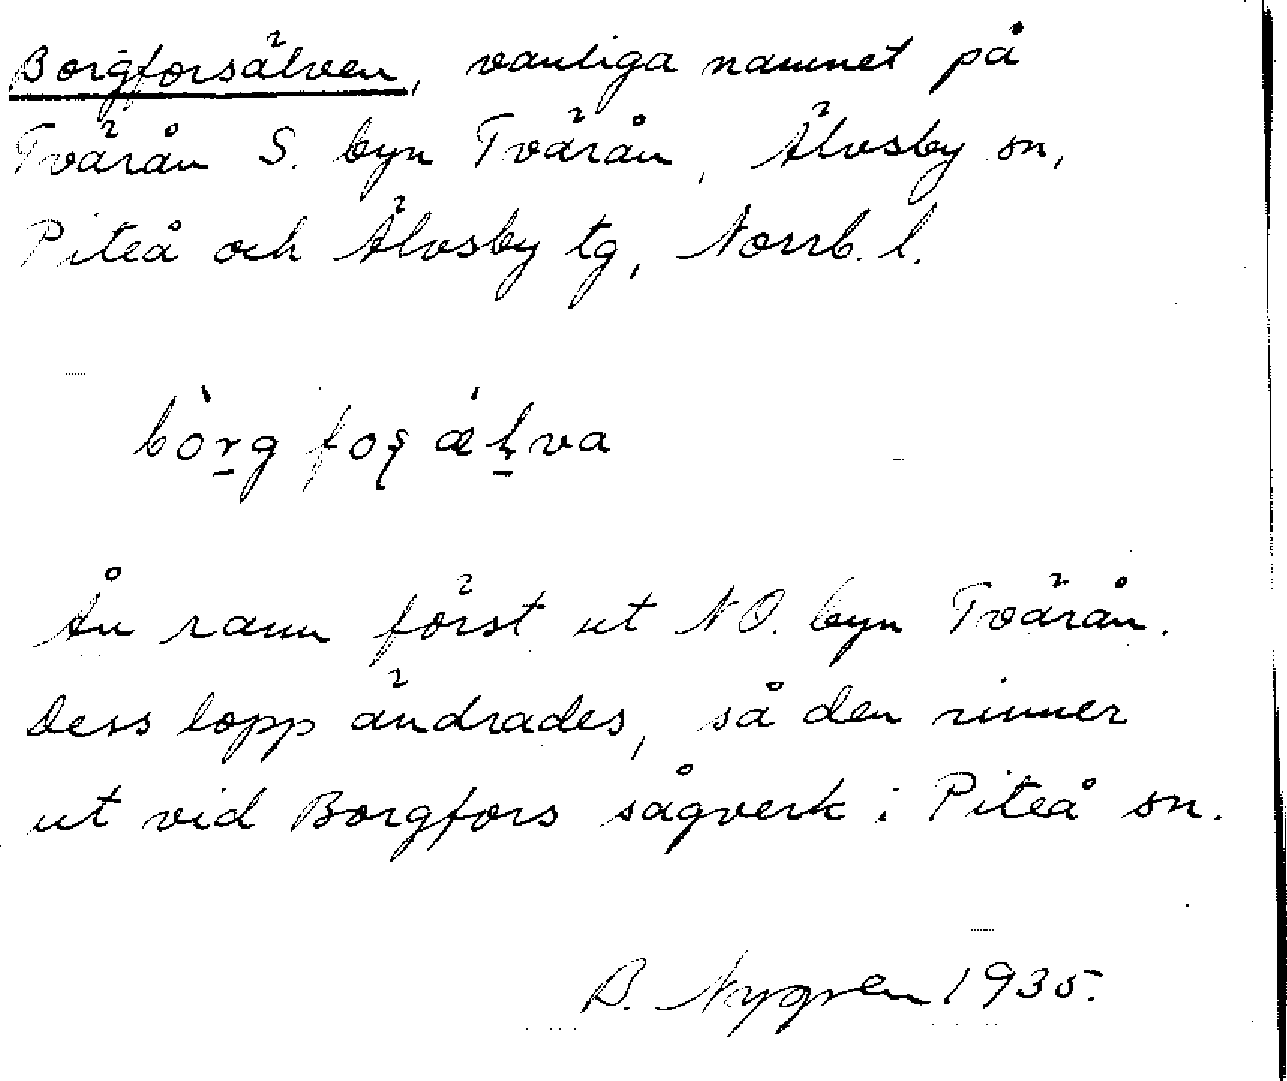 Borgforsälven, vanliga namnet på
Tvärån S. byn Tvärån, Älvsby sn,
Piteå och Älvsby tg, Norrb. l.
bòrgfoʂǽlva
Ån rann först ut NO. byn Tvärån.
Dess lopp ändrades, så den rinner
ut vid Borgfors sågverk i Piteå sn.
B. Nygren 1935.